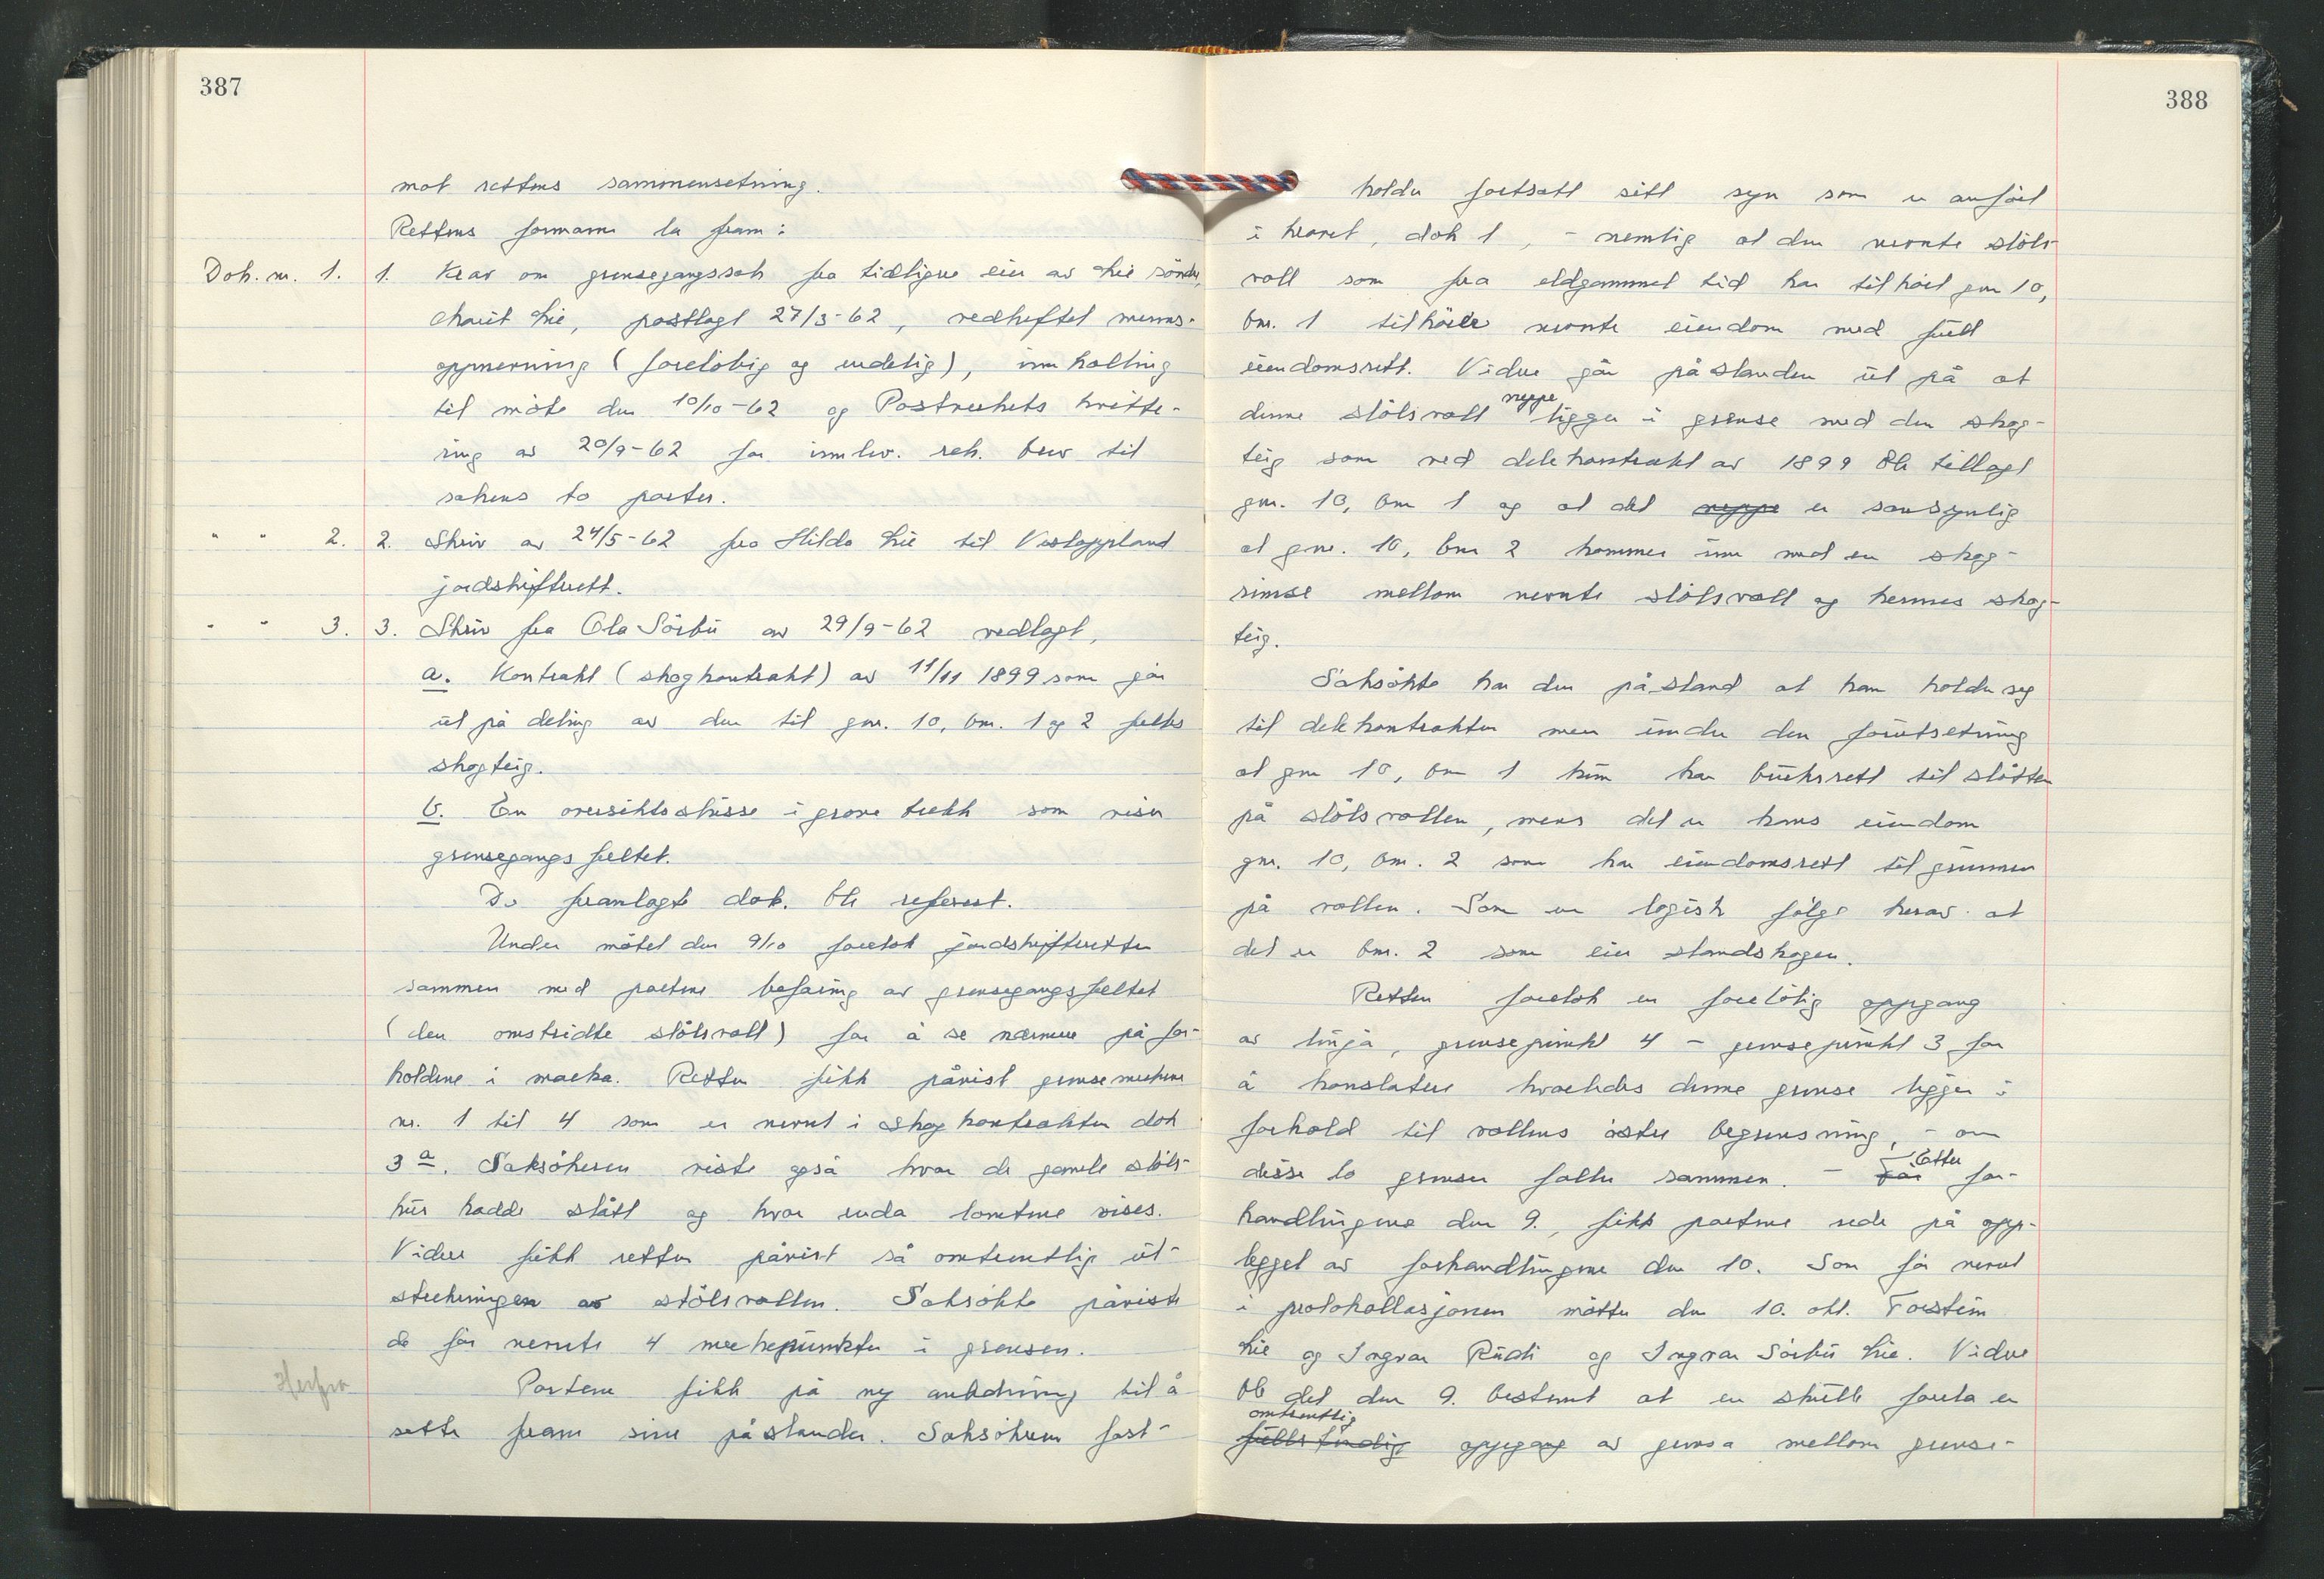 387
mot rettens sammensetning.
Rettens formann la fram:
Dok. nr. 1. 1. Krav om grensegangssak fra tidligere eier av Lie söndre,
Marit Lie, postlagt 27/3-62, vedheftet menns-
oppnevning (foreløbig og endelig), innkalling
til møte den 10/10-62 og Postverkets kvitte-
ring av 20/9-62 for innlev. rek. brev til
sakens to parter.
" " 2. 2. Skriv av 24/5-62 fra Hilda Lie til Vestoppland
jordskifterett.
" " 3. 3. Skriv fra Ola Sörbu av 29/9-62 vedlagt,
a. Kontrakt (skogkontrakt) av 11/11 1899 som går
ut på deling av den til gnr. 10, bnr. 1 og 2 felles
skogteig.
b. En oversiktsskisse i grove trekk som viser
grensegangsfeltet.
De framlagte dok. ble referert.
Under møtet den 9/10 foretok jordskifteretten
sammen med partene befaring av grensegangsfeltet
(den omstridte stölsvoll) for å se nærmere på for-
holdene i marka. Retten fikk påvist grensemerkene
nr. 1 til 4 som er nevnt i skogkontrakten dok
3 a. Saksökeren viste også hvor de gamle stöls-
hus hadde stått og hvor enda tomtene vises.
Videre fikk retten påvist så omtrentlig ut-
strekningen av stölsvollen. Saksökte påviste
de før nevnte 4 merkepunkter i grensen.
Herfra
Partene fikk på ny anledning til å
sette fram sine påstander. Saksökeren fast-
388
holder fortsatt sitt syn som er anført
i kravet, dok 1, - nemlig at den nevnte stöls-
voll som fra eldgammel tid har tilhørt gnr 10,
bnr. 1 tilhörer nevnte eiendom med full
eiendomsrett. Videre går påstanden ut på at
neppe
denne stölsvoll ligger i grense med den skog-
teig som ved delekontrakt av 1899 ble tillagt
gnr. 10, bnr 1 og at det neppe er sansynlig
at gnr. 10, bnr 2 kommer inn med en skog-
rimse mellom nevnte stölsvoll og hennes skog-
teig.
Saksökte har den påstand at han holder seg
til delekontrakten men under den forutsetning
at gnr 10, bnr 1 kun har bruksrett til slåtten
på stölsvollen, mens det er hans eiendom
gnr. 10, bnr. 2 som har eiendomsrett til grunnen
på vollen. Som en logisk følge herav at
det er bnr. 2 som eier standskogen.
Retten foretok en foreløbig oppgang
av linja, grensepunkt 4 - grensepunkt 3 for
å konstatere hvorledes denne grense ligger i
forhold til vollens östre begrensning, - om
Etter
disse to grenser faller sammen. - Før for-
handlingene den 9., fikk partene rede på opp-
legget av forhandlingene den 10. Som før nevnt
i protokollasjonen møtte den 10. okt. Torstein
Lie og Ingvar Rudi og Ingvar Sörbu Lie. Videre
ble det den 9. bestemt at en skulle foreta en
omtrentlig
fullstendig oppgang av grensa mellom grense-